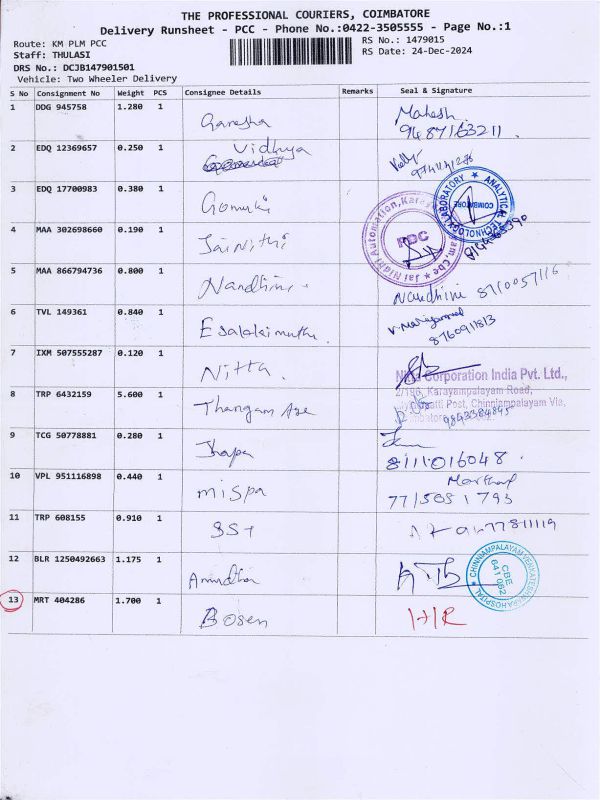 THE PROFESSIONAL COURIERS, COIMBATORE
Delivery Runsheet - PCC - Phone No.:0422-3505555 - Page No.:1
Route: KM PLM PCC
RS No.: 1479015
Staff: THULASI
RS Date: 24-Dec-2024
DRS No.: DCJB147901501
Vehicle: Two Wheeler Delivery
S No Consignment No Weight PCS Consignee Details Remarks Seal & Signature
1 DDG 945758 1.280 1 Ganesha Mahesh.
9487163211.
2 EDQ 12369657 0.250 1 Vidhya
3 EDQ 17700983 0.380 1 Gomuki
ANALYTICAL TECHNOLOGY LABORATORY COIMBATORE
4 MAA 302698660 0.190 1 Jai Nithi
PDC
5 MAA 866794736 0.800 1 Nandhini Nandhini 8710057116
6 TVL 149361 0.840 1 Esalalaimuthu
8760911813
7 IXM 507555287 0.120 1 Nitta.
Corporation India Pvt. Ltd.,
2/196, Karayampalayam Road,
Post, Chinniampalayam Via,
8 TRP 6432159 5.600 1 Thangam Age 9843384845
9 TCG 50778881 0.280 1 Jhapa
8111016048.
10 VPL 951116898 0.440 1 mispa
7715081793
11 TRP 608155 0.910 1 SST 9477811119
12 BLR 1250492663 1.175 1 Amudha
CHINNIAMPALAYAM CBE 641 062
13 MRT 404286 1.700 1 Bosen HR